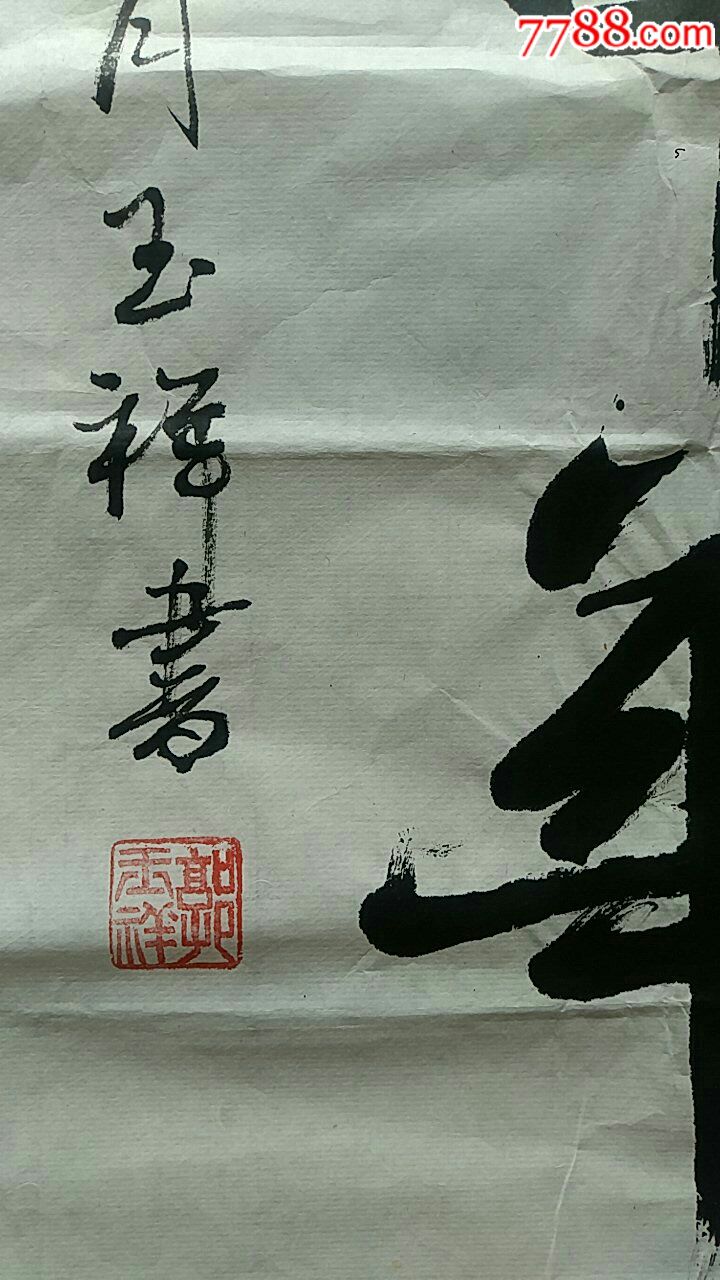 7788.com
月玉祥書
郭玉祥